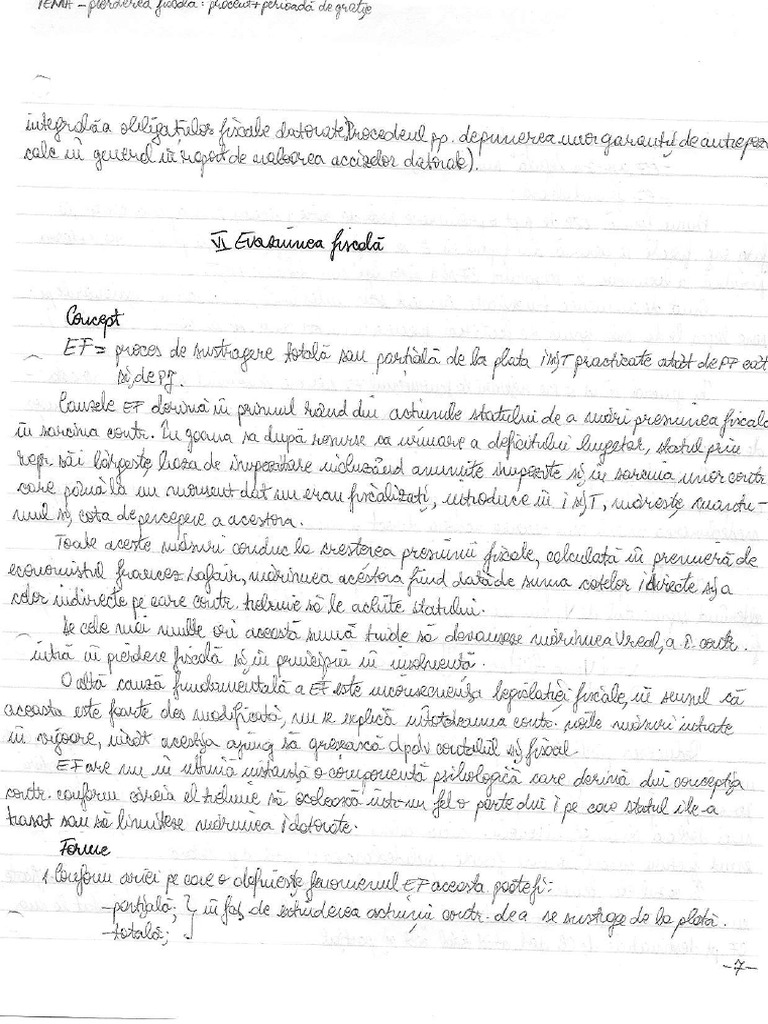 TEMA - pierderea fiscală: procent + perioadă de grație
integrală a obligațiilor fiscale datorate. Procedeul pp. depunerea unor garanții de antrepozi
calc în general în raport de valoarea accizelor datorate).
VI Evaziunea fiscală
Concept
EF = proces de sustragere totală sau parțială de la plata i și T practicate atât de PF cât
și de PJ.
Cauzele EF derivă în primul rând din acțiunile statului de a mări presiunea fiscală
în sarcina contr. În goana sa după resurse ca urmare a deficitului bugetar, statul prin
repr săi lărgește baza de impozitare incluzând anumite impozite și în sarcina unor contr
care până la un moment dat nu erau fiscalizați, introduce în i și T, mărește cuantu-
mul și cota de percepere a acestora.
Toate aceste măsuri conduc la creșterea presiunii fiscale, calculată în premieră de
economistul francez Lafair, mărimea acestora fiind dată de suma cotelor i directe și a
celor indirecte pe care contr. trebuie să le achite statului.
De cele mai multe ori această sumă tinde să devanseze mărimea V real, a contr.
intră în pierdere fiscală și în principiu în insolvență.
O altă cauză fundamentală a EF este inconsecvența legislației fiscale, în sensul că
aceasta este foarte des modificată, nu se explică întotdeauna contr. noile măsuri intrate
în vigoare, încât aceștia ajung să greșească dpdv contabil și fiscal.
EF are nu în ultimă instanță o componentă psihologică care derivă din concepția
contr. conform căreia el trebuie să ocolească într-un fel o parte din i pe care statul i le-a
trasat sau să limiteze mărimea i datorate.
Forme
1. Conform ariei pe care o definește fenomenul EF aceasta poate fi:
- parțială; } în fcț. de extinderea acțiunii contr. de a se sustrage de la plată.
- totală;
-7-